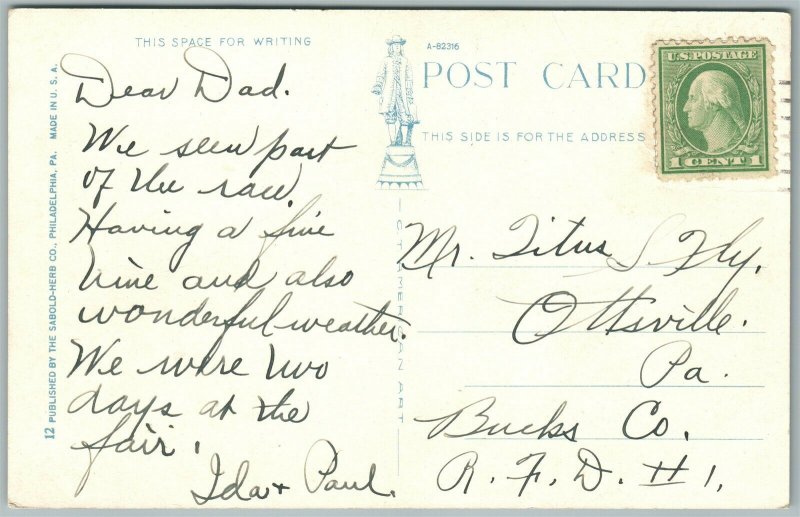 THIS SPACE FOR WRITING
Dear Dad.
We seen part
of the race.
Having a fine
time and also
wonderful weather.
We were two
days at the
fair.
Ida + Paul.
12 PUBLISHED BY THE SABOLD-HERB CO., PHILADELPHIA, PA. MADE IN U. S. A.
A-82316
POST CARD
THIS SIDE IS FOR THE ADDRESS
C. T. AMERICAN ART
U.S. POSTAGE
1 CENT 1
Mr. Titus S Fly.
Ottsville.
Pa.
Bucks Co.
R. F. D. # 1.